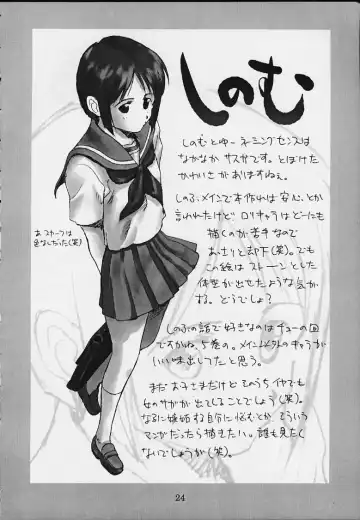 しのむ
しのむとゆーネーミングセンスは
なかなか サスガです。とぼけた
かわいさ があ りますねぇ。
しのぶ メインで本作れば 安心、とか
言われたけど ロリキャラは どーにも
描くのが 苦手なので
あっさりと却下(笑)。でも
この絵は ストーンとした
体型が出せたような気が
する。どうでしょ?
あ、スカーフは
色なしだった(笑)
しのぶの話で好きなのは チューの回
ですかね。5巻の。メイン以外のキャラが
いい味出してたと思う。
まだ おうさまだけど そのうち イヤでも
女のサガが 出てくることでしょう(笑)。
なるに嫉妬する自分に悩むとか そういう
マンガだったら描きたい。誰も見たく
ないでしょうが(笑)。
24